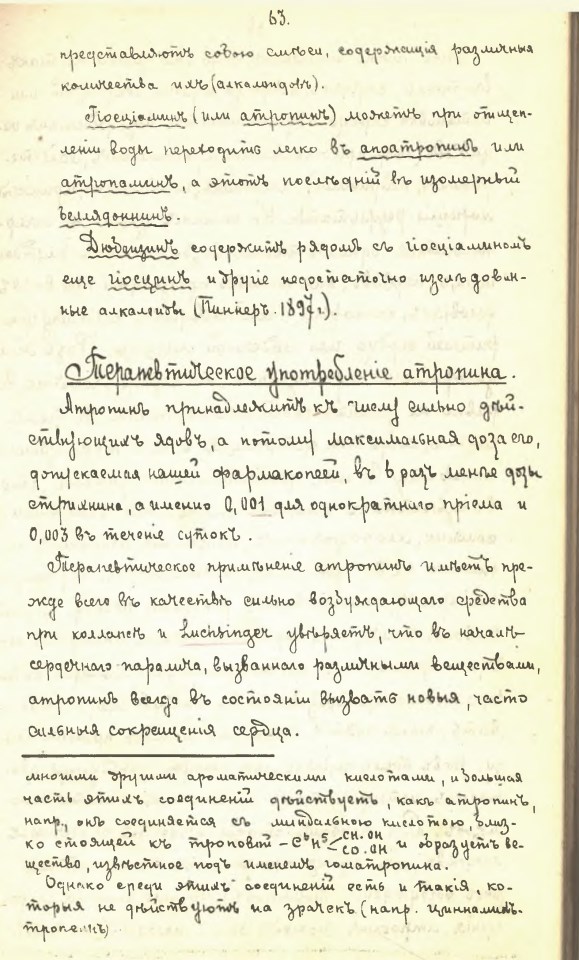 63.
представляютъ собою смѣси, содержащія различныя
количества ихъ (алкалоидовъ).
Гіосціаминъ (или атропинъ) можетъ при отщеп-
леніи воды переходить легко въ апоатропинъ или
атропаминъ, а этотъ послѣдній въ изомерный
белладоннинъ.
Дюбоизинъ содержитъ рядомъ съ гіосціаминомъ
еще гіосцинъ и другіе недостаточно изслѣдован-
ные алкалоиды (Пиннеръ. 1897 г.).
Терапевтическое употребленіе атропина.
Атропинъ принадлежитъ къ числу сильно дѣй-
ствующихъ ядовъ, а потому максимальная доза его,
допускаемая нашей фармакопеей, въ 8 разъ менѣе дозы
стрихнина, а именно 0,001 для однократнаго пріема и
0,003 въ теченіе сутокъ.
Терапевтическое примѣненіе атропинъ имѣетъ пре-
жде всего въ качествѣ сильно возбуждающаго средства
при коллапсѣ и Luchsinger увѣряетъ, что въ началѣ
сердечнаго паралича, вызваннаго различными веществами,
атропинъ всегда въ состояніи вызвать новыя, часто
сильныя сокращенія сердца.
многими другими ароматическими кислотами, и большая
часть этихъ соединеній дѣйствуетъ, какъ атропинъ,
напр., онъ соединяется съ миндальною кислотою, близ-
ко стоящей къ троповой – C6H5 – CH.OH CO.OH и образуетъ ве-
щество, извѣстное подъ именемъ гоматропина.
Однако среди этихъ соединеній есть и такія, ко-
торыя не дѣйствуютъ на зрачекъ (напр. циннамилъ-
тропеинъ)